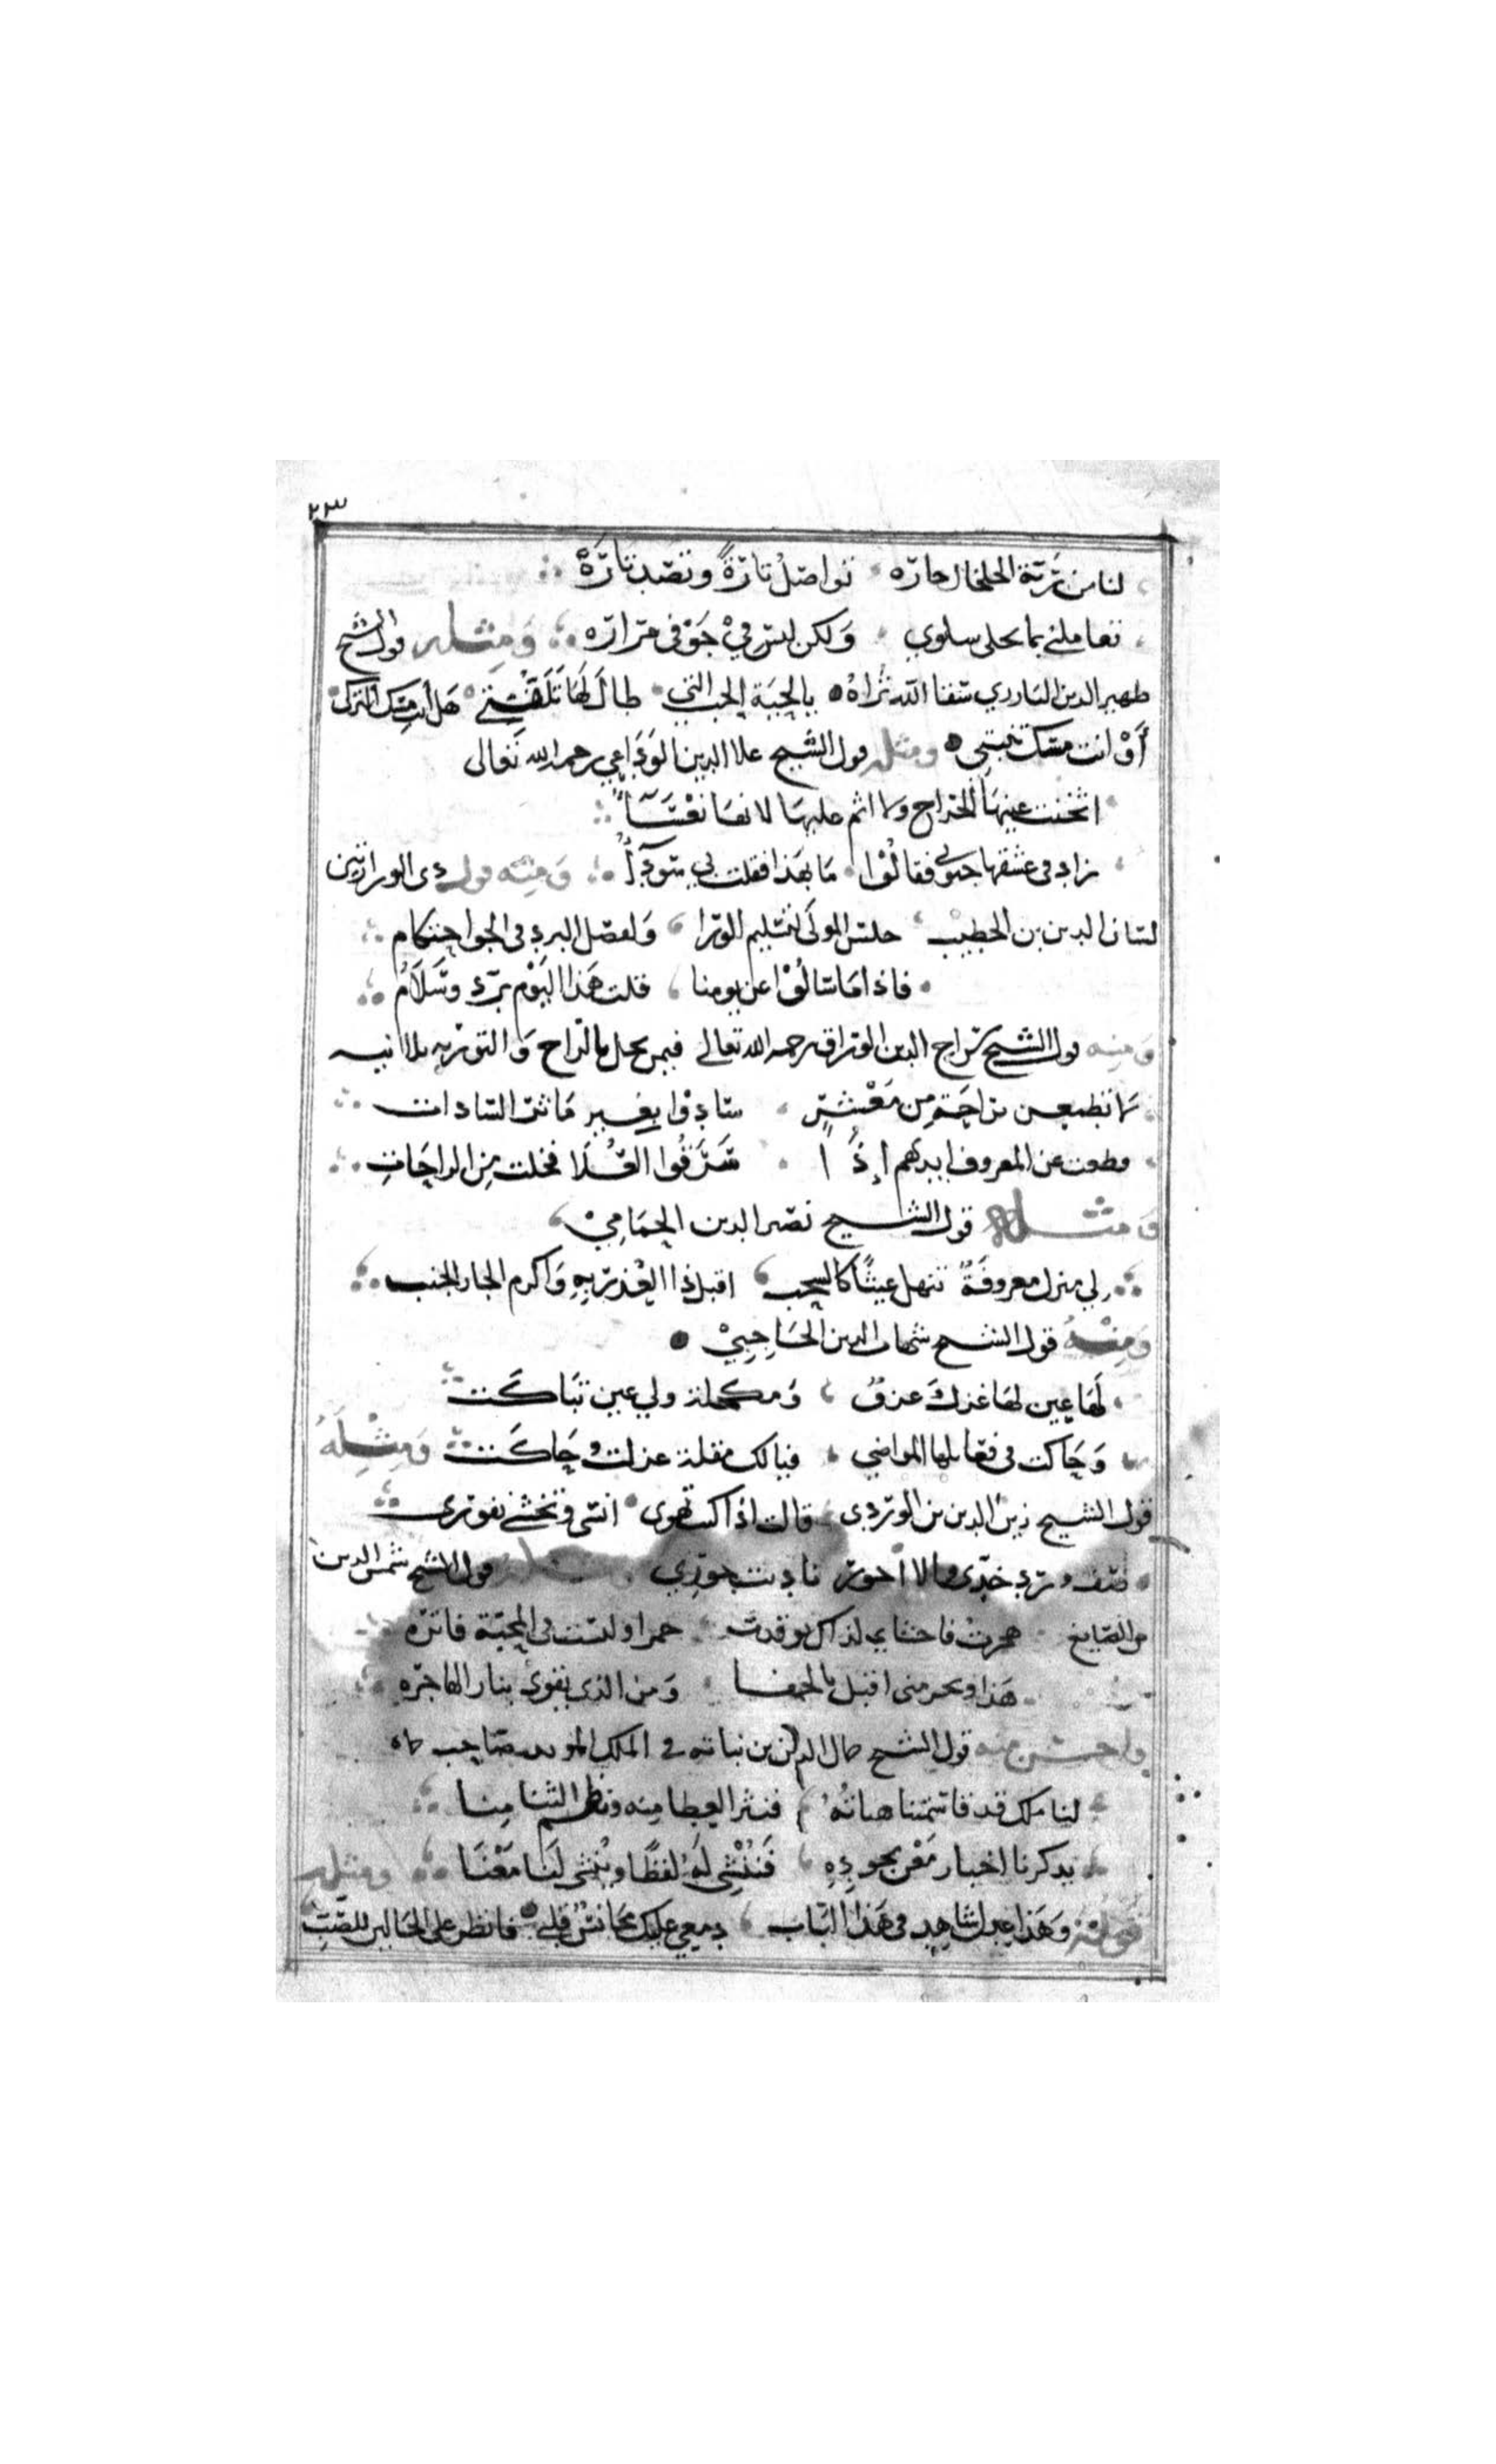 ٢٣
لنا من ربة الخلخال جاره تواصل تارةً وتصد تارَةْ
تعاملني بما يحلى سلوي وَلكن ليس فيْ جَوْفى مرارَه وَمِثله قول الشيخ
ظهير الدين البارزي سقا الله ثراهُ يا لحِيَة الحب التي طالَ لهَا تَلَفُّتِي هَل أنتِ مِسك التركْ
أَوْ انت مسك تبتي ومثله قول الشيخ علا الدين الوَدَاعِي رحمه الله تعَالى
اثخنت عينهَا الجراح ولا اثم عليهَا لانهَا نعْسَآ
زاد في عشقها جنوني فقالُوْا مَا بهَذا فقلت بي سَودَآُ وَمِنْه قول ذى الوزارتين
لسَان الدين بن الخطيبْ جلسَ المولَى لتسْليم الورَا وَلفصْل البردِ في الجو احتكام
فاذا مَا سَالُوْا عن يومنا قلت هَذا اليَوْم بَرد وسَلَامُ
وَمِنه قول الشيخ سرَاج الدين الورّاق رحمه الله تعالى فيمن بخل بالرّاح وَالتوريه ثلاثيه
لا تطمعن براحَةٍ مِن مَعْشرٍ سَادوْا بغَير مَآثر السَّادات
قطعت عن المعروف ايديهم إِذًا سَرَقُوا العُلا فخلت مِن الراحَاتِ
وَمثله قول الشيخ نصير الدين الحمَامِيْ
لي منزل معروفَهُ تنهل غيثًا كالسحب اقبل ذا العُذر بهِ وَاكرم الجار الجنب
وَمِنْهُ قول الشيخ شهاب الدين الحَاجِبِيْ
لَها عين لهَا غزلَ غزوٌ وَمكحلة ولي عين تبَاكَت
وَحَاكت في فعَايلها المواضي فيا لك مقلة غزلت وحَاكَت وَمِثلَهُ
قول الشيخ زين الدين بن الورْدِى قالت اذا كنت تهوى انسى وتخشى نفورى
صف وَرد خدّى والا اجور ناديت جورِي ومثله قول الشيخ شمس الدين
بن الصَايغ هجرت فاحشاي لذاك توقدت جمرا ولست في المحبّة فاتره
هَذا وبحر مني اقبل بالجفا وَمن الذي يقوى بنار الهَاجرَه
وَاحسَن مِنه قول الشيخ جمال الدين بن نباته في الملك المويد صَاحِب حماه
لنا ملك قد قاسمتنا هباتهُ فنثر العِطا مِنه ونظم الثنا مِنا
يذكرنا اخبار مَعْن بجودِهِ فَنُنْشِى لهُ لفظًا ويُنشِى لنَا مَعْنَا وَمثله
قَولهُ وَهَذا عِ شاهِد في هَذا البَاب دمعِي عليك مجَانسٌ قلبي فانظر على الحَالين للصّبِّ